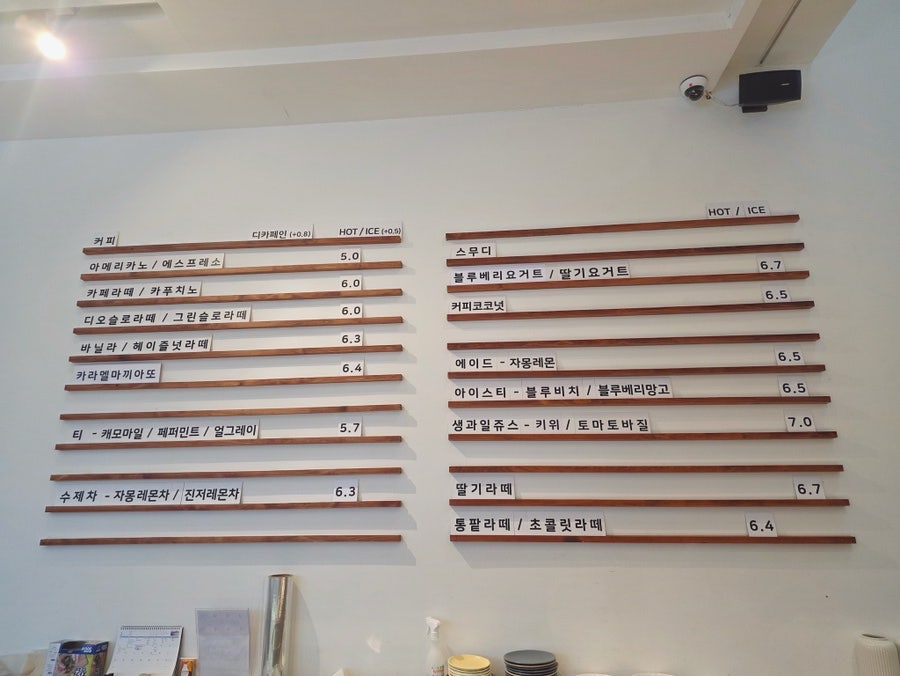 커피 디카페인 (+0.8) HOT / ICE (+0.5)
아메리카노 / 에스프레소 5.0
카페라떼 / 카푸치노 6.0
디오슬로라떼 / 그린슬로라떼 6.0
바닐라 / 헤이즐넛라떼 6.3
카라멜마끼아또 6.4
티 - 캐모마일 / 페퍼민트 / 얼그레이 5.7
수제차 - 자몽레몬차 / 진저레몬차 6.3
HOT / ICE
스무디
블루베리요거트 / 딸기요거트 6.7
커피코코넛 6.5
에이드 - 자몽레몬 6.5
아이스티 - 블루비치 / 블루베리망고 6.5
생과일쥬스 - 키위 / 토마토바질 7.0
딸기라떼 6.7
통팥라떼 / 초콜릿라떼 6.4